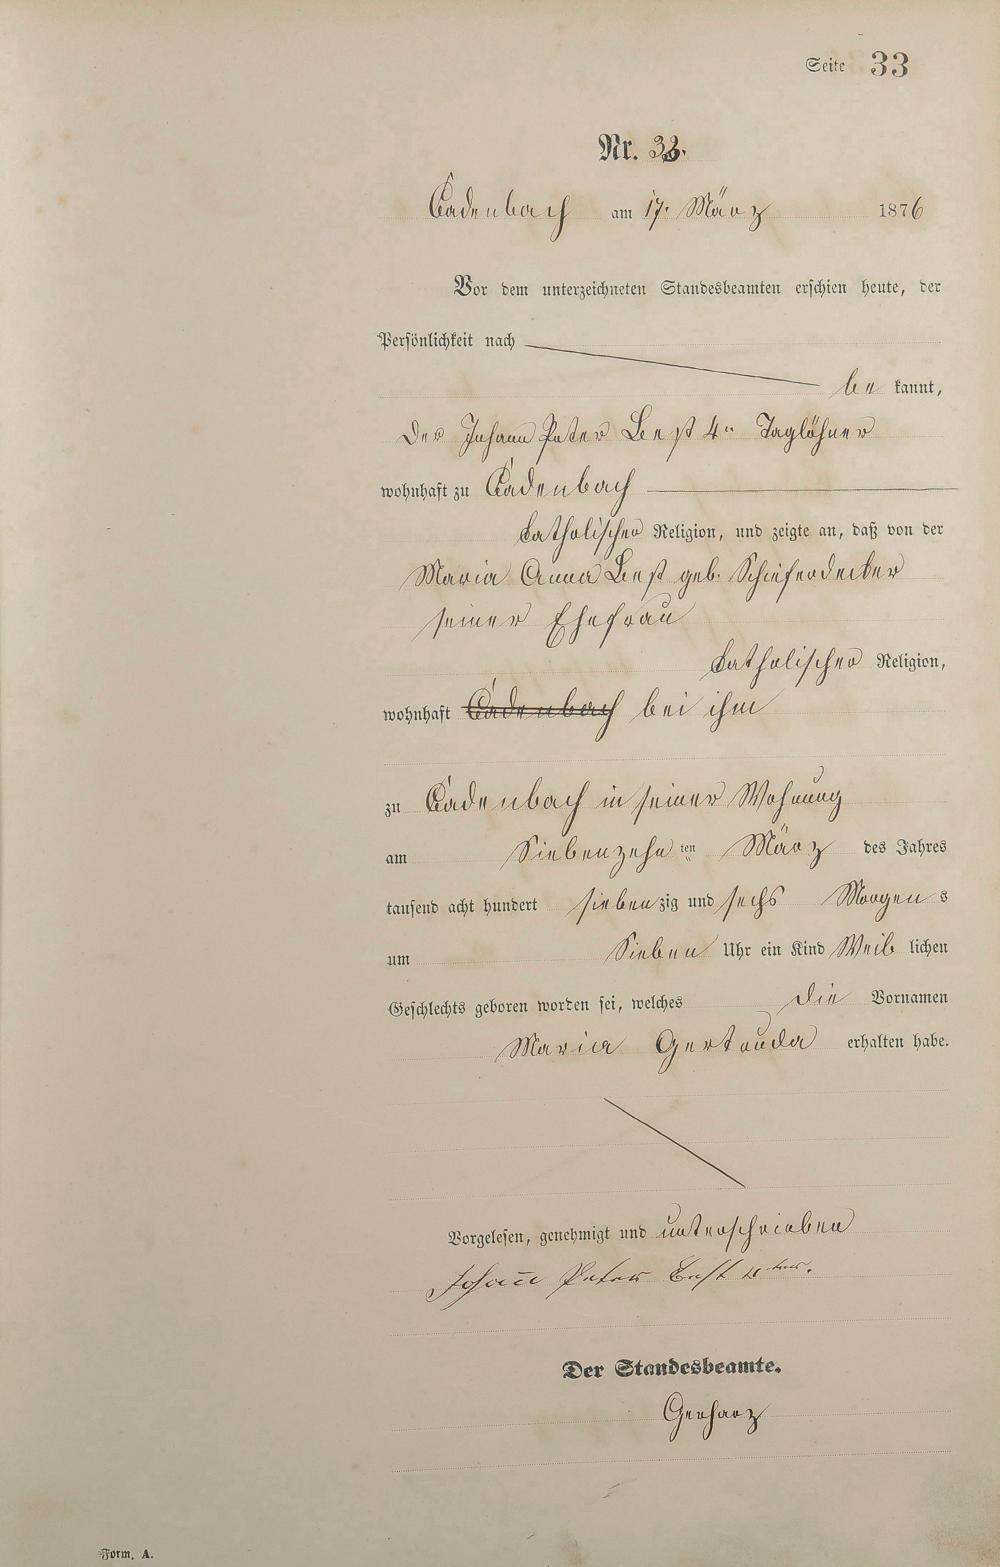 Seite 33
Nr. 33.
Cadenbach am 17. März 1876
Vor dem unterzeichneten Standesbeamten erschien heute, der
Persönlichkeit nach
be kannt,
der Johann Peter Best 4r Taglöhner
wohnhaft zu Cadenbach
katholischer Religion, und zeigte an, daß von der
Maria Anna Best geb. Schieferdecker
seiner Ehefrau
katholischer Religion,
wohnhaft Cadenbach bei ihm
zu Cadenbach in seiner Wohnung
am Siebenzehn ten März des Jahres
tausend acht hundert siebenzig und sechs Morgen s
um Sieben Uhr ein Kind Weib lichen
Geschlechts geboren worden sei, welches die Vornamen
Maria Gertruda erhalten habe.
Vorgelesen, genehmigt und unterschrieben
Johann Peter Best 4ter.
Der Standesbeamte.
Gerharz
Form. A.